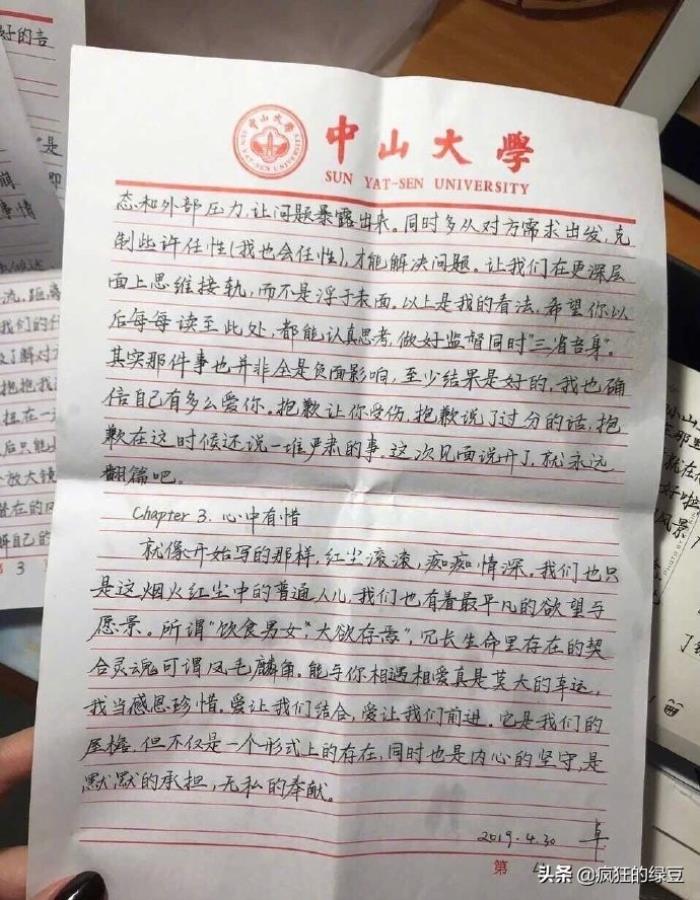 中山大學
SUN YAT-SEN UNIVERSITY
态和外部压力,让问题暴露出来。同时多从对方需求出发,克
制些许任性(我也会任性),才能解决问题。让我们在更深层
面上思维接轨,而不是浮于表面。以上是我的看法,希望你以
后每每读至此处,都能认真思考,做好监督同时"三省吾身"。
其实那件事也并非全是负面影响,至少结果是好的,我也确
信自己有多么爱你。抱歉让你受伤,抱歉说了过分的话,抱
歉在这时候还说一堆严肃的事。这次见面说开了,就永远
翻篇吧。
Chapter 3. 心中有惜
就像开始写的那样,红尘滚滚,痴痴情深。我们也只
是这烟火红尘中的普通人儿,我们也有着最平凡的欲望与
愿景。所谓"饮食男女","大欲存焉",冗长生命里存在的契
合灵魂可谓凤毛麟角。能与你相遇相爱真是莫大的幸运,
我当感恩珍惜。爱让我们结合,爱让我们前进,它是我们的
屋檐,但不仅是一个形式上的存在,同时也是内心的坚守,是
默默的承担,无私的奉献。
2019.4.30 卓
第
头条 @疯狂的绿豆
好的言
是
即
事情
流,距离
我们的
了解对方
抱抱我
扭在一
后只能
放大镜
解自己的
3
小山
就在
好啦
风景